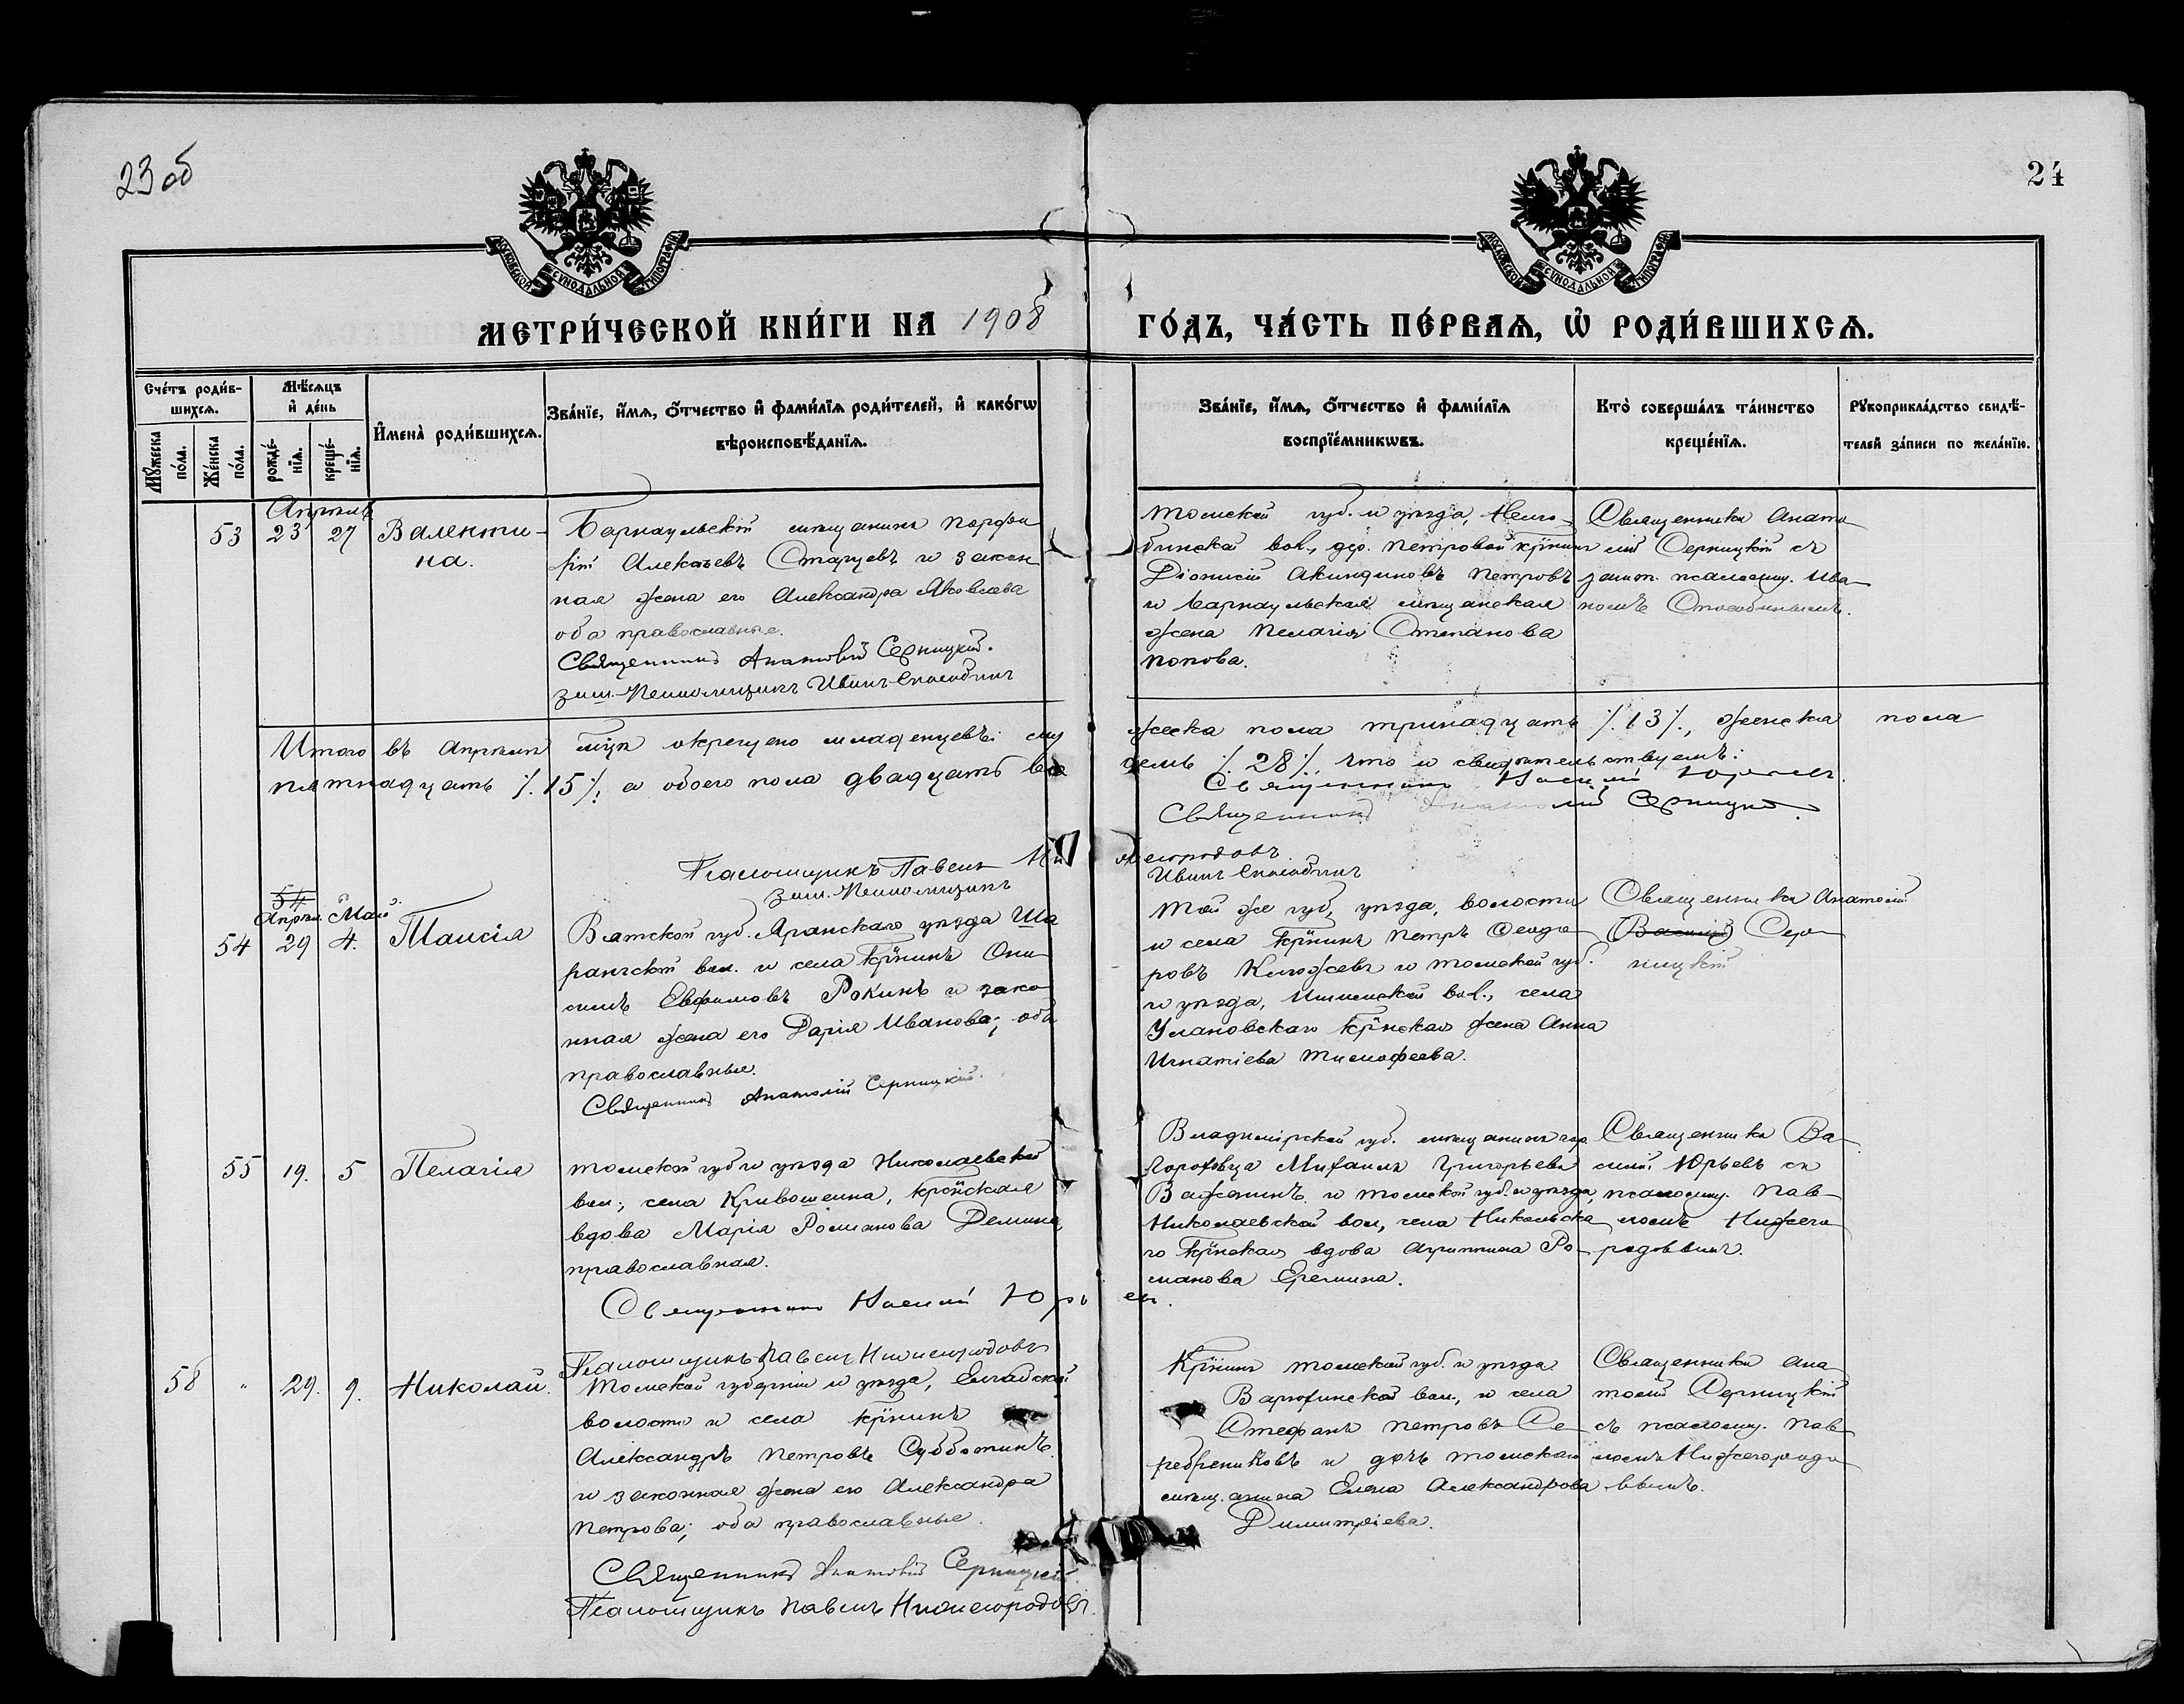 23 об
24
МОСКОВСКОЙ СѴНОДАЛЬНОЙ ТИПОГРАФІИ
МОСКОВСКОЙ СѴНОДАЛЬНОЙ ТИПОГРАФІИ
МЕТРИ́ЧЕСКОЙ КНИ́ГИ НА 1908 ГО́ДЪ, ЧА́СТЬ ПЕ́РВАѦ, Ѡ҆ РОДИ́ВШИХСѦ.
Сче́тъ роди́в-
шихсѧ.
Мꙋ́жеска по́ла.
Же́нска по́ла.
Мѣ́сѧцъ
и҆ де́нь
рожде́-нїѧ.
креще́-нїѧ.
И҆мена̀ роди́вшихсѧ.
Зва́нїе, и҆́мѧ, ѻ҆́тчество и҆ фами́лїѧ роди́телей, и҆ како́гѡ
вѣроисповѣ́данїѧ.
Зва́нїе, и҆́мѧ, ѻ҆́тчество и҆ фами́лїѧ
воспрїе́мникѡвъ.
Кто̀ соверша́лъ та́инство
креще́нїѧ.
Рꙋкоприкла́дство свидѣ́-
телей за́писи по жела́нїю.
Апрѣль
53 23 27 Валенти-
на.
Барнаульскій мѣщанинъ Порфи
рій Алексѣевъ Старцевъ и закон
ная жена его Александра Яковлева
оба православные.
Священникъ Анатолій Серницкій.
заш. Псаломщикъ Иванъ Способинъ
Томской губ. и уѣзда, Нелю-
бинской вол., дер. Петровой кр҃нинъ
Діонисій Акиндиновъ Петровъ
и барнаульская мѣщанская
жена Пелагія Степанова
Попова.
Священникъ Анато
лій Серницкій съ
зашт. псаломщ. Ива-
номъ Способинымъ.
Итого въ Апрѣлѣ мѣсѧ окрещено младенцевъ: му жеска пола тринадцать ⁒ 13 ⁒, женска пола
пятнадцать ⁒ 15 ⁒, а обоего пола двадцать во семь ⁒ 28 ⁒, что и свидѣтельствуемъ:
Священникъ Василій Юрьевъ.
Священникъ Анатолій Серницкій.
Псаломщикъ Павелъ Ни жегородовъ
заш. Псаломщикъ Иванъ Способинъ
54
Апрѣл. Май
54 29 4. Таисія
Вятской губ. Яранскаго уѣзда Ша
рангской вол. и села кр҃нинъ Они
симъ Евфимовъ Рокинъ и зако
нная жена его Дарія Иванова; оба
православные.
Священникъ Анатолій Серницкій.
Той же губ, уѣзда, волости
и села кр҃нинъ Петръ Ѳеодо
ровъ Княжевъ и томской губ.
и уѣзда, Ишимской вол., села
Улановскаго кр҃нская жена Анна
Игнатіева Тимофеева.
Священника Анатолій
(Василій) Сер-
ницкій
55 19. 5 Пелагія
Томской губ и уѣзда Николаевской
вол., села Кривошеина, кр҃нская
вдова Марія Романова Демина
православная.
Священникъ Василій Юрь евъ.
Псаломщикъ Павелъ Нижегородовъ
Владимірской губ. мѣщанинъ гор.
Гороховца Михаилъ Григорьевъ
Важенинъ и томской губ. и уѣзда,
Николаевской вол, села Никольска
го кр҃нская вдова Агриппина Ро-
манова Еремина.
Священника Ва-
силій Юрьевъ съ
псаломщ. Пав-
ломъ Нижего
родовымъ.
58 " 29. 9. Николай.
Томской губерніи и уѣзда, Елгайской
волости и села кр҃нинъ
Александръ Петровъ Субботинъ
и законная жена его Александра
Петрова; оба православные.
Священникъ Анатолій Серницкій
Псаломщикъ Павелъ Нижегородовъ.
Кр҃нинъ томской губ. и уѣзда
Варюхинской вол., и села
Стефанъ Петровъ Се-
ребрениковъ и дочь томскаго
мѣщанина Елена Александрова
Димитріева.
Священника Ана
толій Серницкій
съ псаломщ. Пав
ломъ Нижегородо
вымъ.